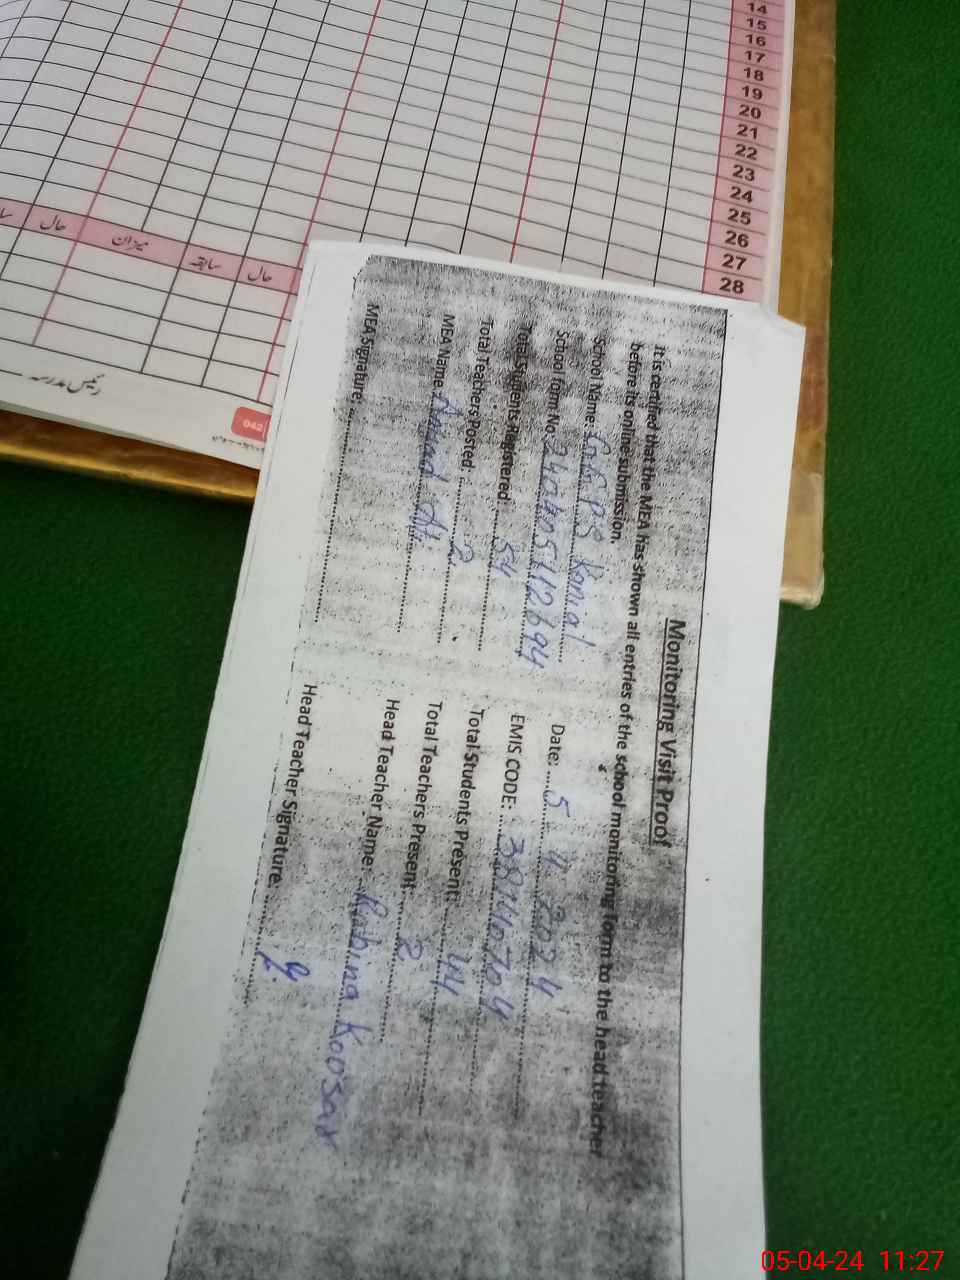 14
15
16
17
18
19
20
21
22
23
24
25
26
27
28
حال
میزان
سابقہ
حال
رئیس مدرسہ
042
Monitoring Visit Proof
It is certified that the MEA has shown all entries of the school monitoring form to the head teacher
before its online submission.
School Name: G.G.P.S Date: 5 4 2024
School form No. 240405112694 EMIS CODE: 38140704
Total Students Registered: 54 Total Students Present: 44
Total Teachers Posted: 2 Total Teachers Present: 2
MEA Name: Head Teacher Name: Rubina Koosar
MEA Signature: Head Teacher Signature:
05-04-24 11:27